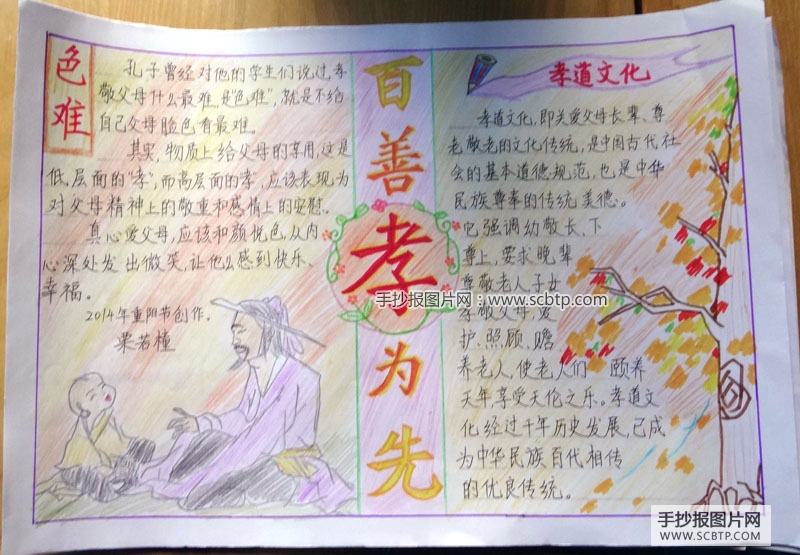 色难
孔子曾经对他的学生们说过,孝
敬父母什么最难,是色难”,就是不给
自己父母脸色看最难。
其实,物质上给父母的享用,这是
低,层面的“孝”,而高层面的孝”,应该表现为
对父母精神上的敬重和感情上的安慰。
真心爱父母,应该和颜悦色,从内、
心深处发出微笑,让他么感到快乐、
幸福。
2014年重阳节创作。
栗若槿
百善孝为先
孝道文化
孝道文化,即关爱父母长辈、尊
老敬老的文化传统,是中国古代社
会的基本道德规范,也是中华
民族尊奉的传统美德。
它强调幼敬长、下
尊上,要求晚辈
尊敬老人,子女
孝敬父母,爱
护、照顾、赡
养老人,使老人们颐养
天年,享受天伦之乐。孝道文
化经过千年历史发展,已成
为中华民族百代相传
的优良传统。
手抄报图片网:www.scbtp.com
手抄报图片网
WWW.SCBTP.COM